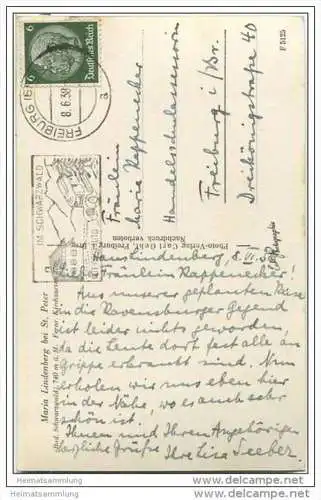 FREIBURG
8.6.38
a
IM SCHWARZWALD
6 Deutsches Reich 6
Fräulein
Maria Rappenecker
Handelsschulassessorin
Freiburg i/Br.
Dreikönigstraße 40
F 5125
Photo-Verlag Carl Gehl, Freiburg i.
Nachdruck verboten
Maria Lindenberg bei St. Peter
Haus Lindenberg, 8. VI. 38
Liebe Fräulein Rappenecker!
Aus unserer geplanten Reise
in die Ravensburger Gegend
ist leider nichts geworden,
da die Leute dort fast alle an
Grippe erkrankt sind. Nun
erholen wir uns eben hier
in der Nähe, wo es auch sehr
schön ist.
Ihnen und Ihren Angehörigen
herzliche Grüße Ihre Lise Seeber.
Heimatsammlung
Heimatsammlung